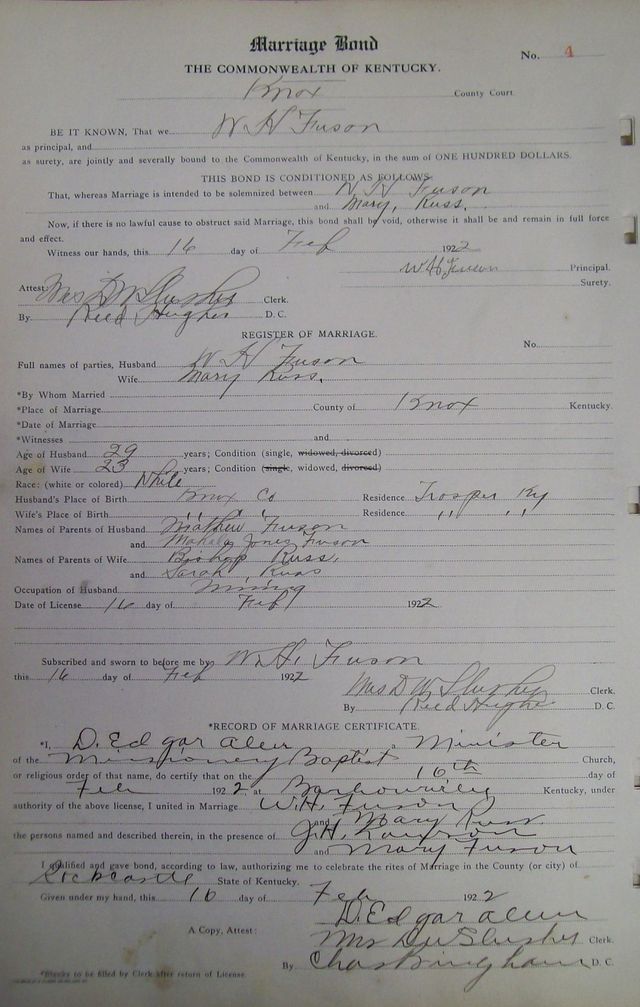 Marriage Bond
No. 4
THE COMMONWEALTH OF KENTUCKY.
Knox County Court
BE IT KNOWN, That we W H Fuson
as principal, and
as surety, are jointly and severally bound to the Commonwealth of Kentucky, in the sum of ONE HUNDRED DOLLARS.
THIS BOND IS CONDITIONED AS FOLLOWS:
That, whereas Marriage is intended to be solemnized between W H Fuson
and Mary, Russ.
Now, if there is no lawful cause to obstruct said Marriage, this bond shall be void, otherwise it shall be and remain in full force
and effect.
Witness our hands, this 16 day of Feb 1922
W H Fuson Principal.
Surety.
Attest: Mrs D W Slusher Clerk.
By Reed Hughes D. C.
REGISTER OF MARRIAGE.
No.
Full names of parties, Husband W H Fuson
Wife Mary Russ.
*By Whom Married
*Place of Marriage County of Knox Kentucky.
*Date of Marriage
*Witnesses and
Age of Husband 29 years; Condition (single, widowed, divorced)
Age of Wife 23 years; Condition (single, widowed, divorced)
Race: (white or colored) White
Husband's Place of Birth Knox Co Residence Trosper Ky
Wife's Place of Birth " " " Residence " "
Names of Parents of Husband Mathew Fuson
and Mahala Jones Fuson
Names of Parents of Wife Bishop Russ,
and Sarah, Russ
Occupation of Husband Mining
Date of License 16 day of Feb 1922
Subscribed and sworn to before me by W. H. Fuson
this 16 day of Feb 1922
Mrs D W Slusher Clerk.
By Reed Hughes D. C.
*RECORD OF MARRIAGE CERTIFICATE.
*I, D. Edgar Allen, Minister
of the Missionary Baptist Church,
or religious order of that name, do certify that on the 16th day of
Feb 1922 at Barbourville Kentucky, under
authority of the above license, I united in Marriage W. H. Fuson
and Mary Russ
the persons named and described therein, in the presence of J. H.
and Mary Fuson
I qualified and gave bond, according to law, authorizing me to celebrate the rites of Marriage in the County (or city) of
Rockcastle State of Kentucky.
Given under my hand, this 16 day of Feb 1922
D. Edgar Allen
A Copy, Attest: Mrs D W Slusher Clerk.
By Chas Bingham D. C.
*Blanks to be filled by Clerk after return of License.